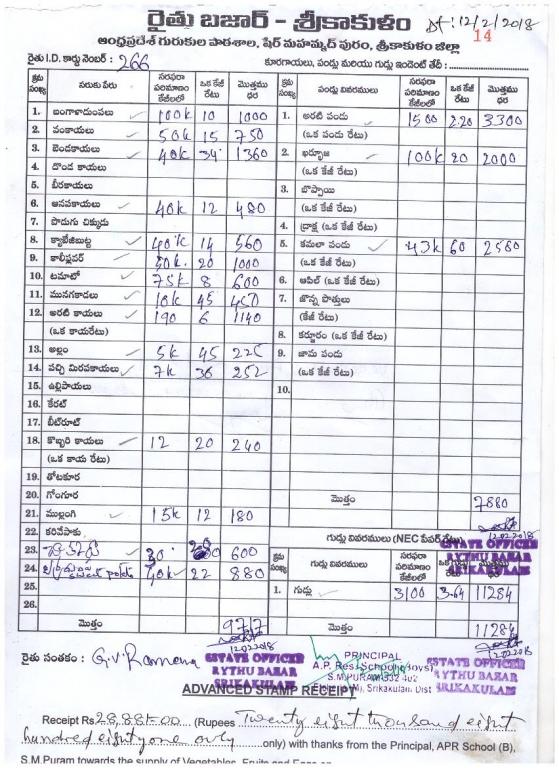 రైతు బజార్ - శ్రీకాకుళం
Dt: 12/2/2018
14
ఆంధ్రప్రదేశ్ గురుకుల పాఠశాల, షేర్ మహమ్మద్ పురం, శ్రీకాకుళం జిల్లా
రైతు I.D. కార్డు నెంబర్ : 266
కూరగాయలు, పండ్లు మరియు గుడ్లు ఇండెంట్ తేది :
క్రమ సంఖ్య సరుకు పేరు సరఫరా పరిమాణం కేజీలలో ఒక కేజీ రేటు మొత్తము ధర
1. బంగాళాదుంపలు 100k 10 1000
2. వంకాయలు 50k 15 750
3. బెండకాయలు 40k 34 1360
4. దొండ కాయలు
5. బీరకాయలు
6. ఆనపకాయలు 40k 12 480
7. పొడుగు చిక్కుడు
8. క్యాబేజిబుట్ట 40k 14 560
9. కాలీఫ్లవర్ 50k 20 1000
10. టమాటో 75k 8 600
11. మునగకాడలు 10k 45 450
12. అరటి కాయలు 190 6 1140
(ఒక కాయరేటు)
13. అల్లం 5k 45 225
14. పచ్చి మిరపకాయలు 7k 36 252
15. ఉల్లిపాయలు
16. కేరట్
17. బీట్‌రూట్
18. కొబ్బరి కాయలు 12 20 240
(ఒక కాయ రేటు)
19. తోటకూర
20. గోంగూర
21. ముల్లంగి 15k 12 180
22. కరివేపాకు
23. 30 20 600
24. sweet potato 40k 22 880
25.
26.
మొత్తం 9717
క్రమ సంఖ్య పండ్లు వివరములు సరఫరా పరిమాణం కేజీలలో ఒక కేజీ రేటు మొత్తము ధర
1. అరటి పండు 1500 2.20 3300
(ఒక పండు రేటు)
2. ఖర్బూజ 100k 20 2000
(ఒక కేజీ రేటు)
3. బొప్పాయి
(ఒక కేజీ రేటు)
4. ద్రాక్ష (ఒక కేజీ రేటు)
5. కమలా పండు 43k 60 2580
(ఒక కేజీ రేటు)
6. ఆపిల్ (ఒక కేజీ రేటు)
7. జొన్న పొత్తులు
(కేజీ రేటు)
8. కర్జూరం (ఒక కేజీ రేటు)
9. జామ పండు
(ఒక కేజీ రేటు)
10.
మొత్తం 7880
12.02.2018
గుడ్లు వివరములు (NEC పేపర్ రేటు)
ESTATE OFFICER
RYTHU BAZAR
SRIKAKULAM
క్రమ సంఖ్య గుడ్లు వివరములు సరఫరా పరిమాణం కేజీలలో ఒక గుడ్డు రేటు మొత్తము ధర
1. గుడ్లు 3100 3.64 11284
మొత్తం 11284
12.02.2018
రైతు సంతకం : G.V. Ramana
12.02.2018
ESTATE OFFICER
RYTHU BAZAR
SRIKAKULAM
PRINCIPAL
A.P. Res. School (Boys)
S.M.PURAM-532 402
Srikakulam Dist
ESTATE OFFICER
RYTHU BAZAR
SRIKAKULAM
ADVANCED STAMP RECEIPT
Receipt Rs 28,881-00 (Rupees Twenty eight thousand eight
hundred eighty one only only) with thanks from the Principal, APR School (B),
S.M.Puram towards the supply of Vegetables, Fruits and Eggs on